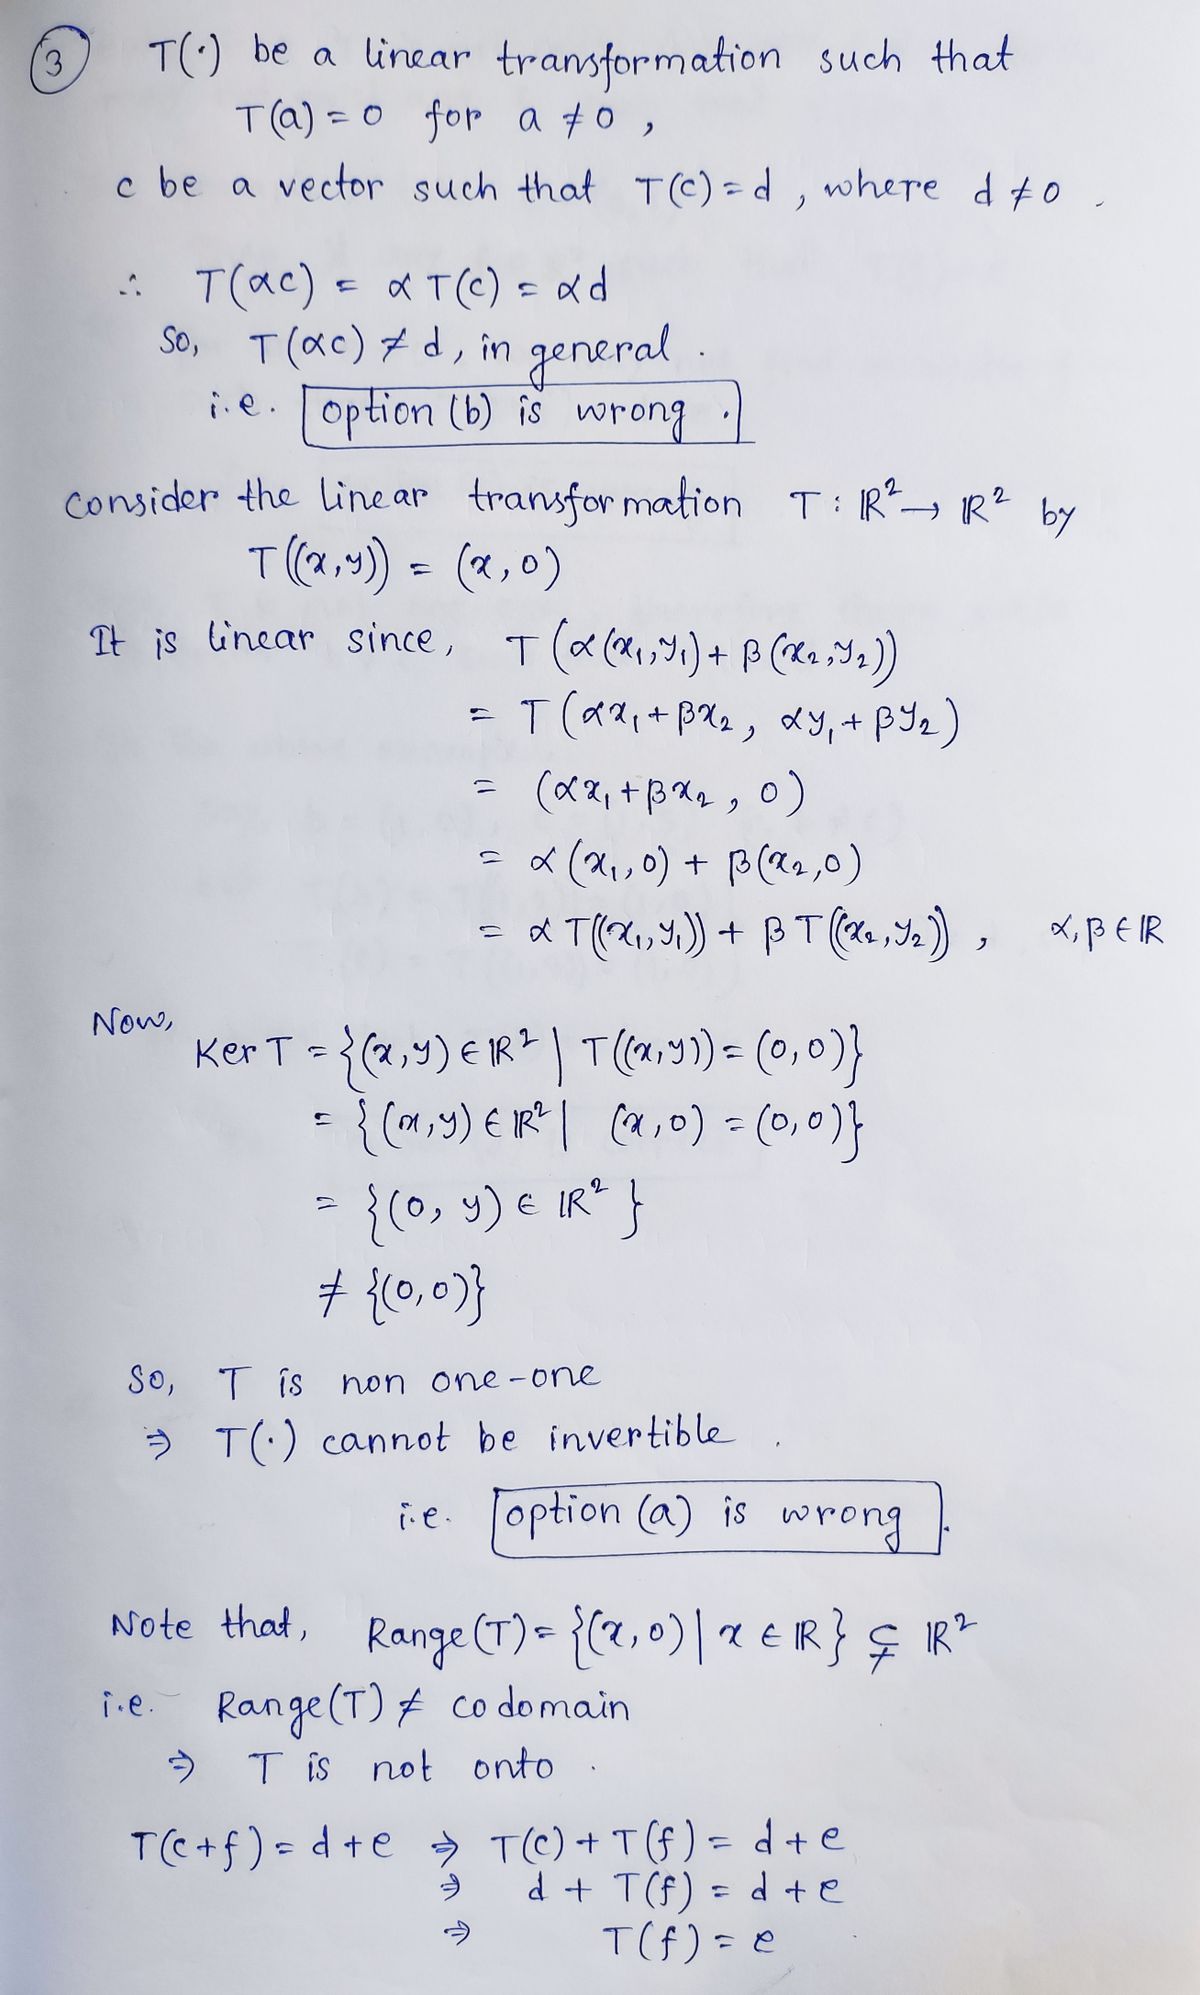 3 T(·) be a linear transformation such that
T(a) = 0 for a ≠ 0 ,
c be a vector such that T(c) = d , where d ≠ 0 .
∴ T(αc) = α T(c) = αd
So, T(αc) ≠ d, in general .
i.e. option (b) is wrong .
Consider the linear transformation T : ℝ² → ℝ² by
T((x,y)) = (x, 0)
It is linear since, T (α(x₁,y₁) + β(x₂,y₂))
= T (αx₁ + βx₂ , αy₁ + βy₂)
= (αx₁ + βx₂ , 0)
= α (x₁, 0) + β(x₂,0)
= α T((x₁,y₁)) + β T((x₂,y₂)) , α,β ∈ ℝ
Now,
Ker T = {(x,y) ∈ ℝ² | T((x,y)) = (0,0)}
= {(x,y) ∈ ℝ² | (x,0) = (0,0)}
= {(0, y) ∈ ℝ² }
≠ {(0,0)}
So, T is non one-one
⇒ T(·) cannot be invertible .
i.e. option (a) is wrong .
Note that, Range(T) = {(x,0) | x ∈ ℝ} ⊊ ℝ²
i.e. Range(T) ≠ codomain
⇒ T is not onto .
T(c+f) = d+e ⇒ T(c) + T(f) = d+e
⇒ d + T(f) = d+e
⇒ T(f) = e